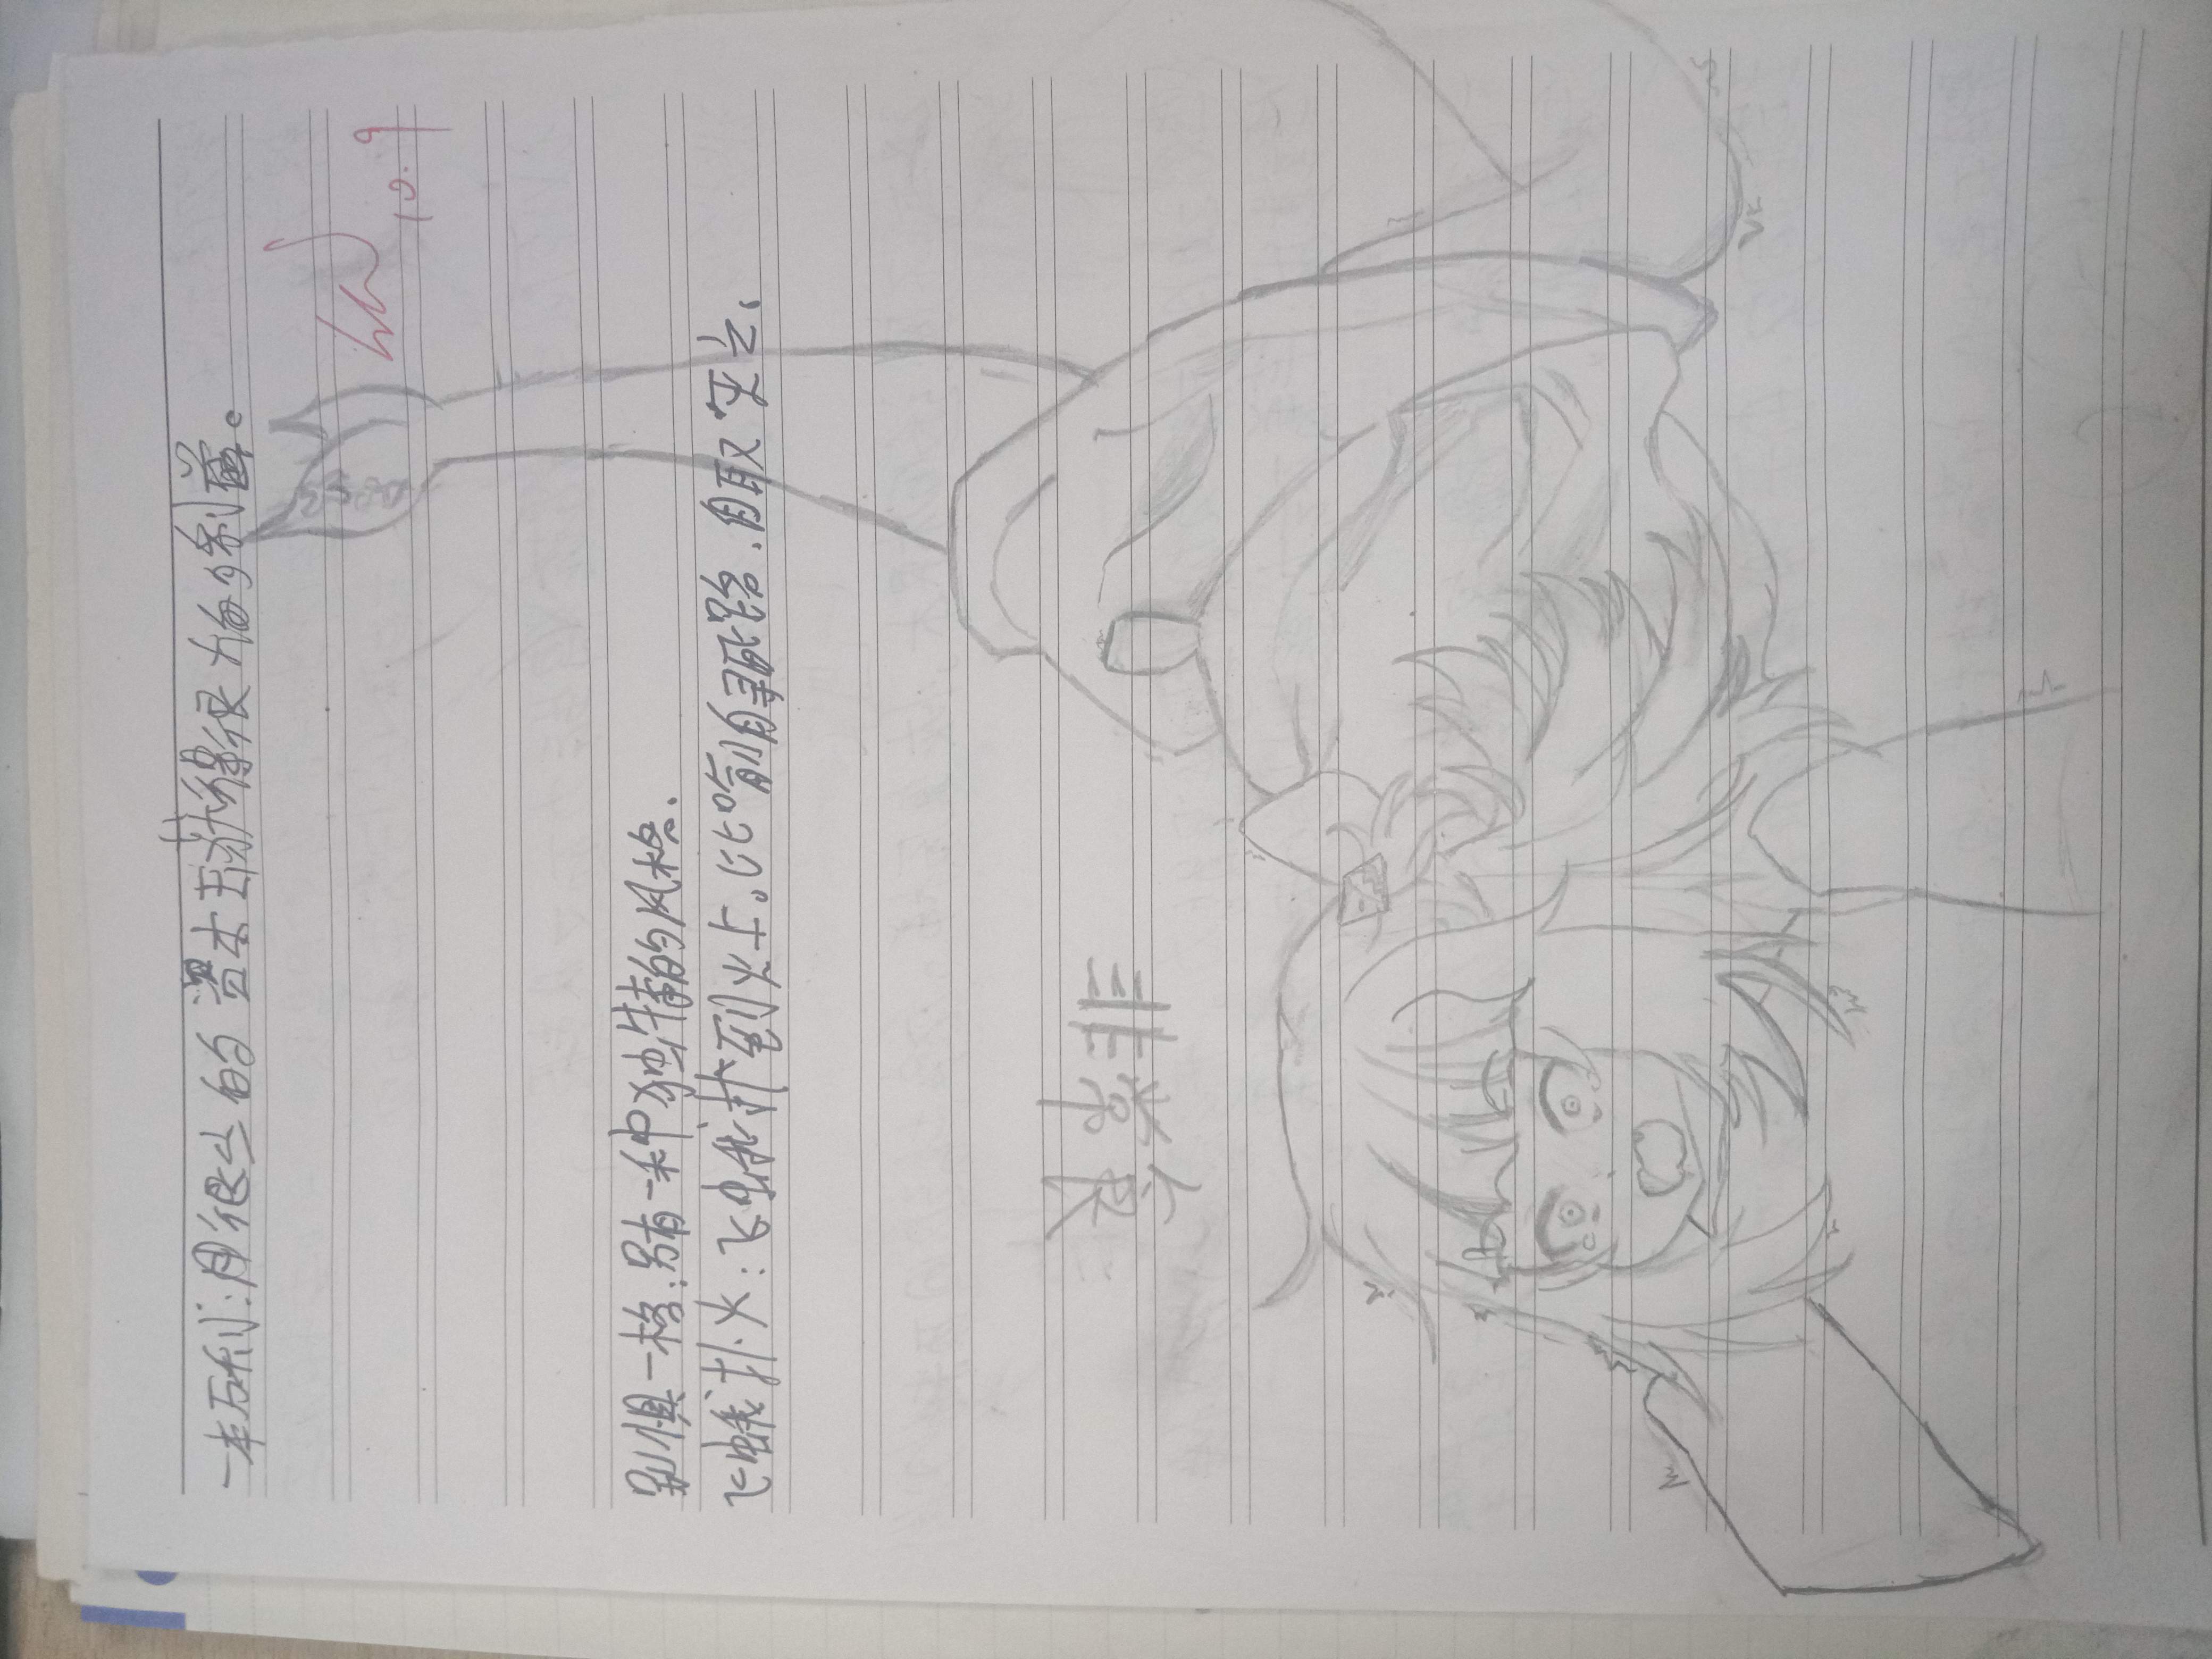 一本万利:用很少的资本去获得很大的利益。
10.9
别惧一格:另有一种独特的风格.
飞蛾扑火:飞蛾扑到火上。比喻自寻死路.自取灭亡.